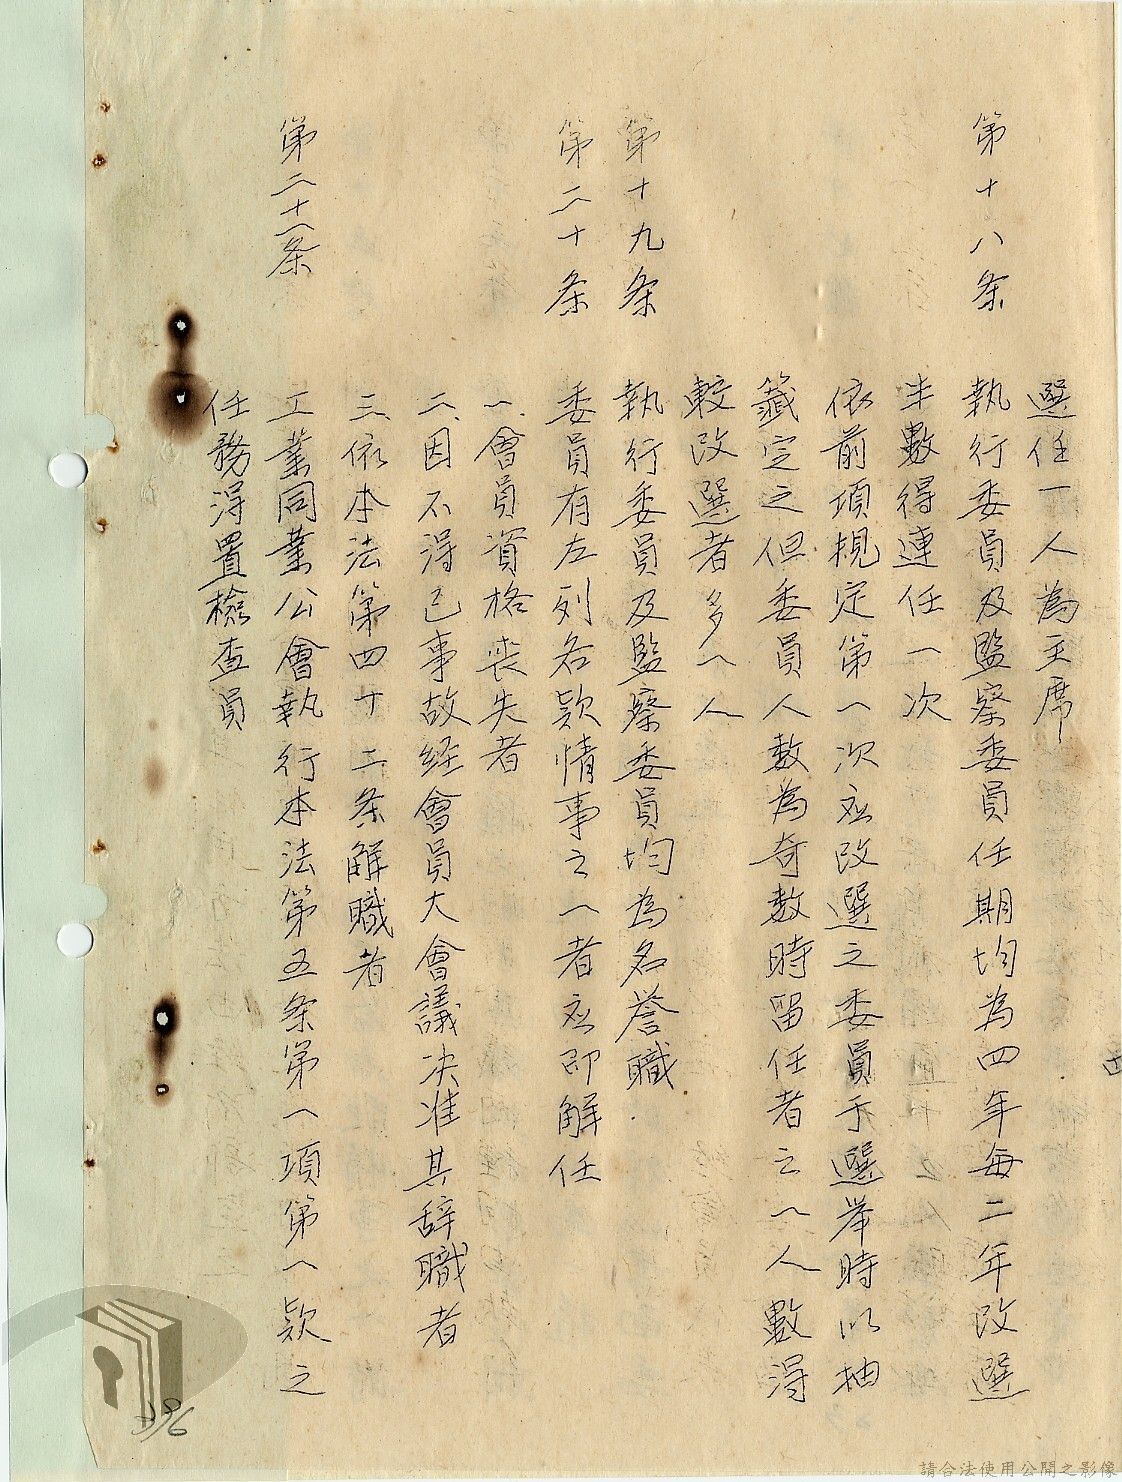 選任一人為主席
第十八条　執行委員及監察委員任期均為四年每二年改選
半數得連任一次
依前項規定第一次应改選之委員于選举時以抽
籤定之但委員人数為奇数時留任者之一人數得
較改選者多一人
第十九条　執行委員及監察委員均為名誉職.
第二十条　委員有左列各款情事之一者应即解任
一、會員資格丧失者
二、因不得已事故経會員大會議决准其辞職者
三、依本法第四十二条解職者
第二十一条　工業同業公會執行本法第五条第一項第一款之
任務得置檢查員
請合法使用公開之影像